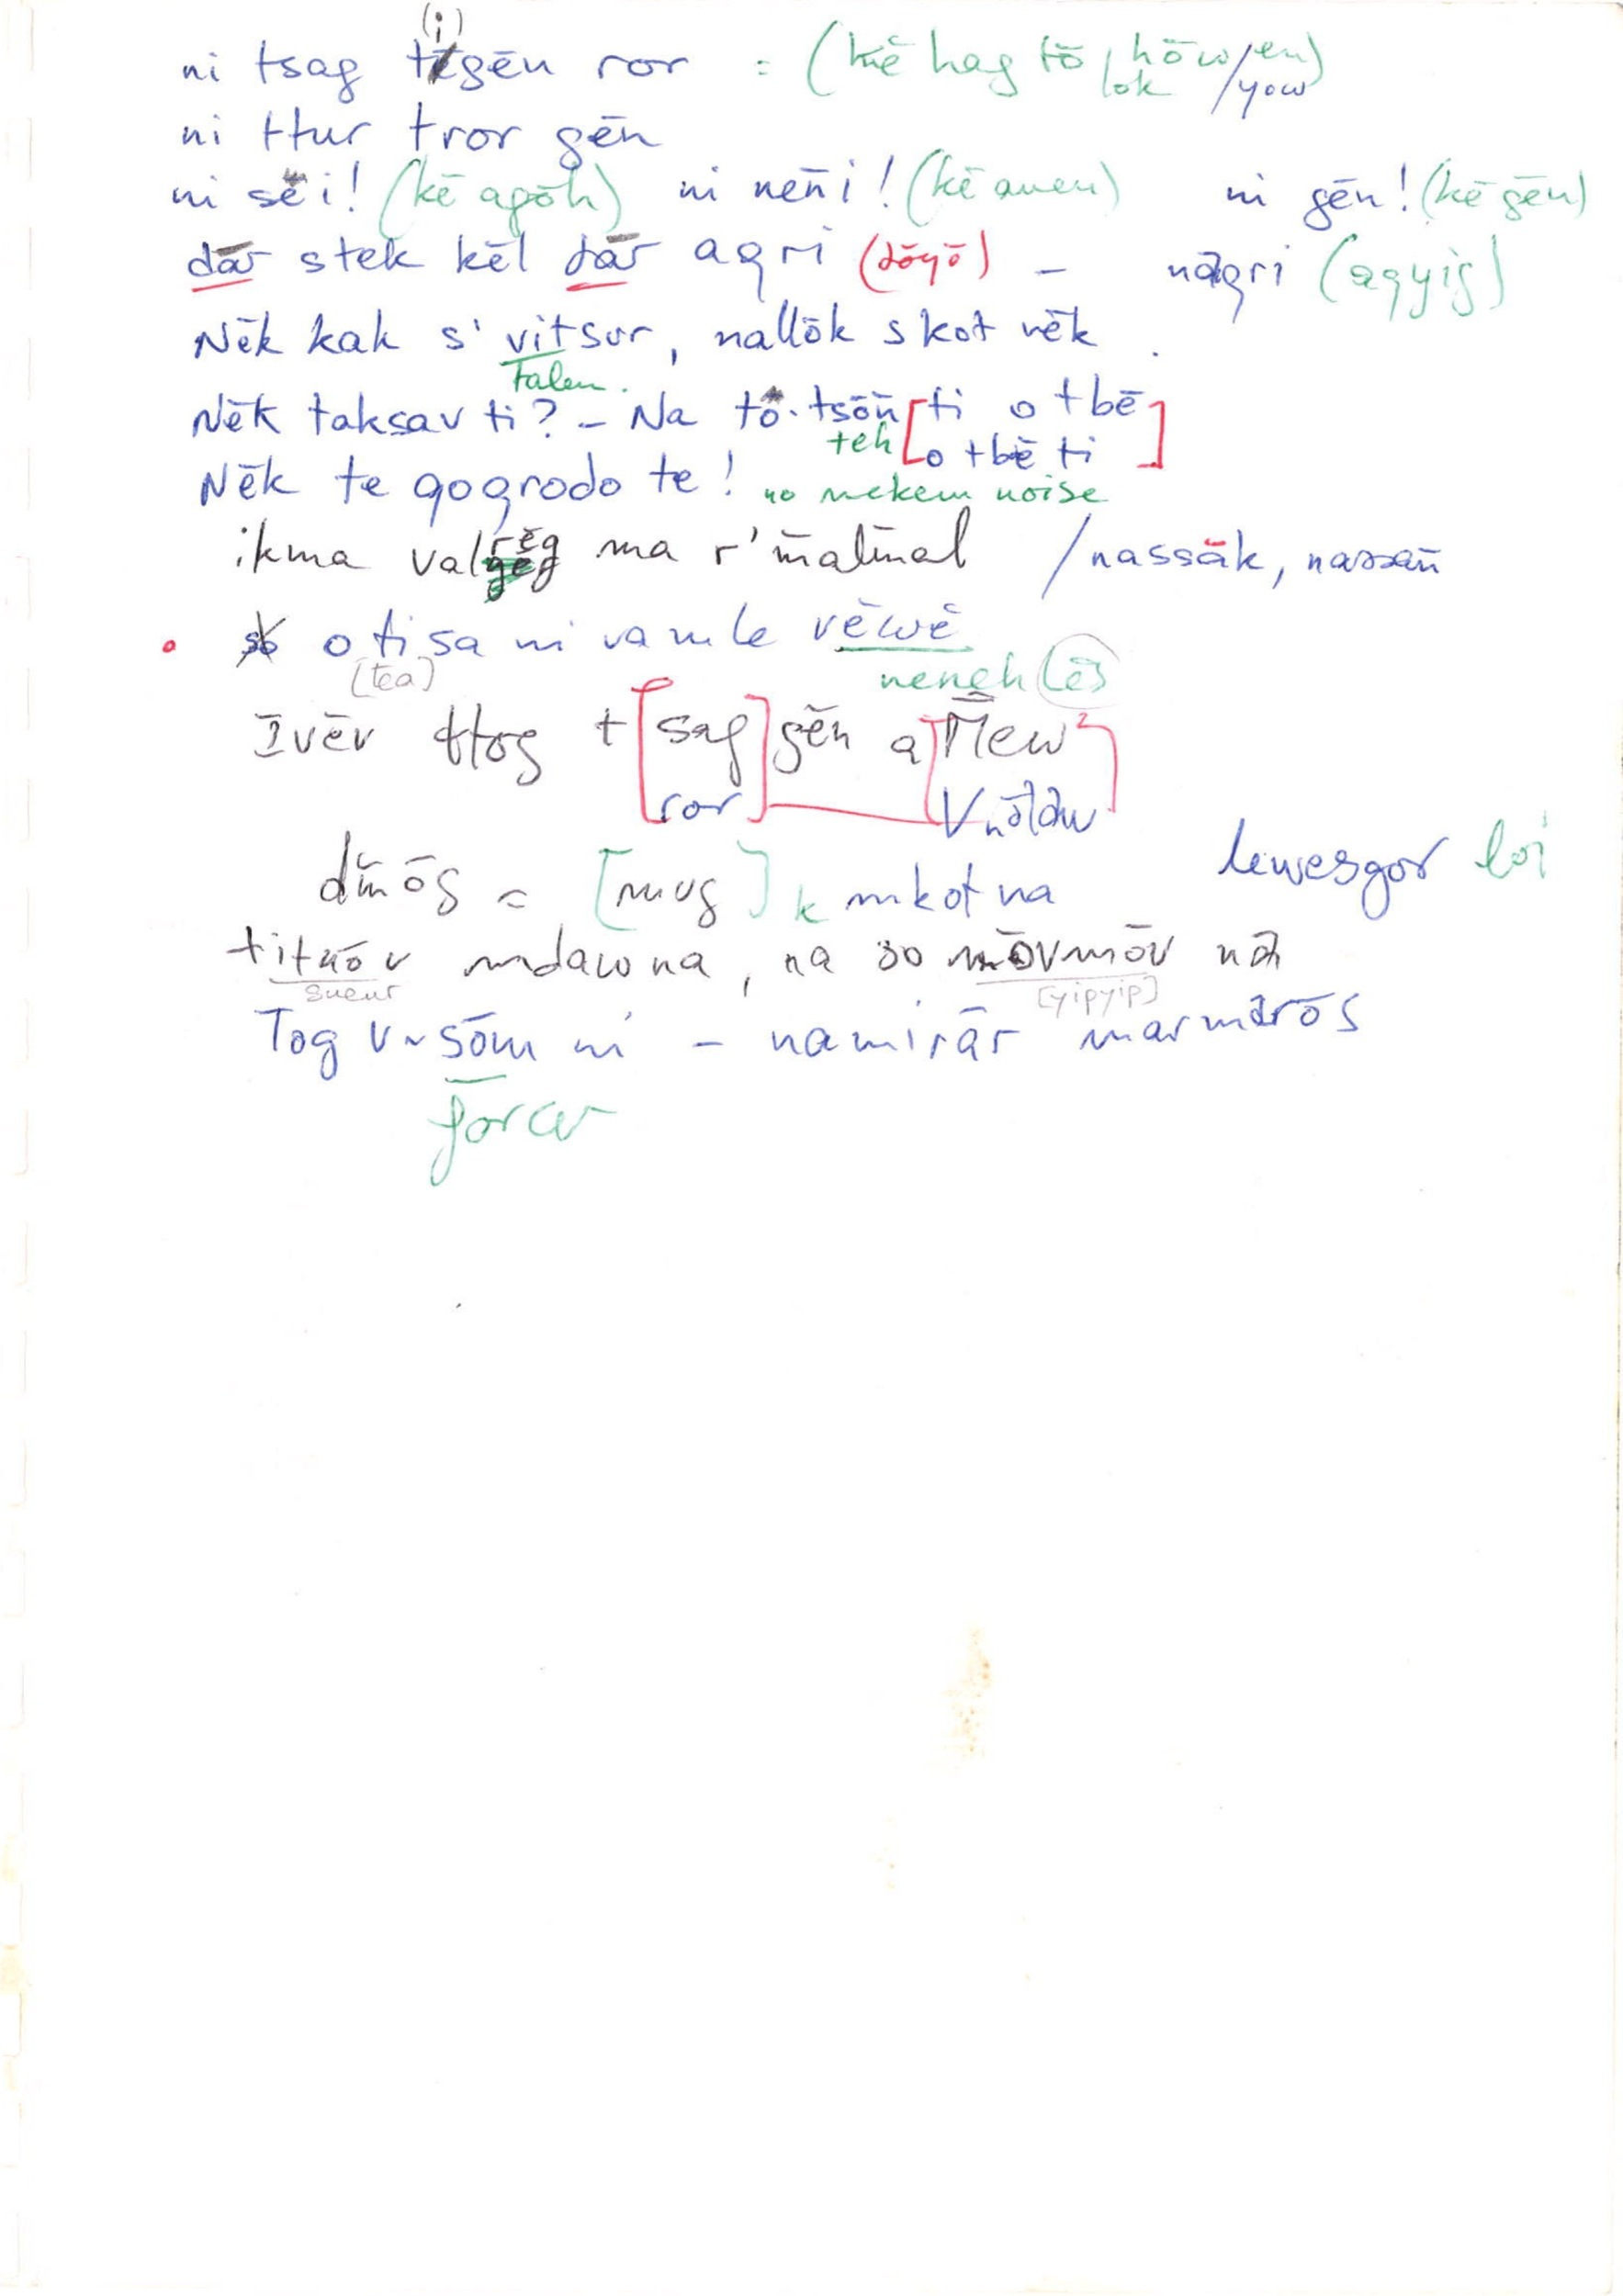 (i)
ni tsag tigēn ror = (kē hag tō lok hōw/en)
/yow
ni ttur tror gēn
ni sēi! (kē agōh) ni nen̄i! (kē amen) ni gēn! (kē gēn)
dār stek kēl dār aqri (dōyō) - nāqri (aqyig)
Nēk kak s' vitsur, nallōk skot nēk.
Talem.
Nēk taksav ti? - Na tō. tsōn̄ [ti o tbē]
teh [o tbē ti]
Nēk te qoqrodo te! no mekem noise
ikma valrēg ma r' m̄alm̄al /nassāk, nassan̄
o ti sa ni vanle vēwē
(tea) neneh (ēs)
Ivēv ttog t [sag] gēn a m̄ew
ror
dm̄ōs = [mus] k nikot na lewesgor loi
titnōv mdawna, na so mōvmōv nā
sueur [yipyip]
Tog v~sōm ni - namirār marmārōs
forcer